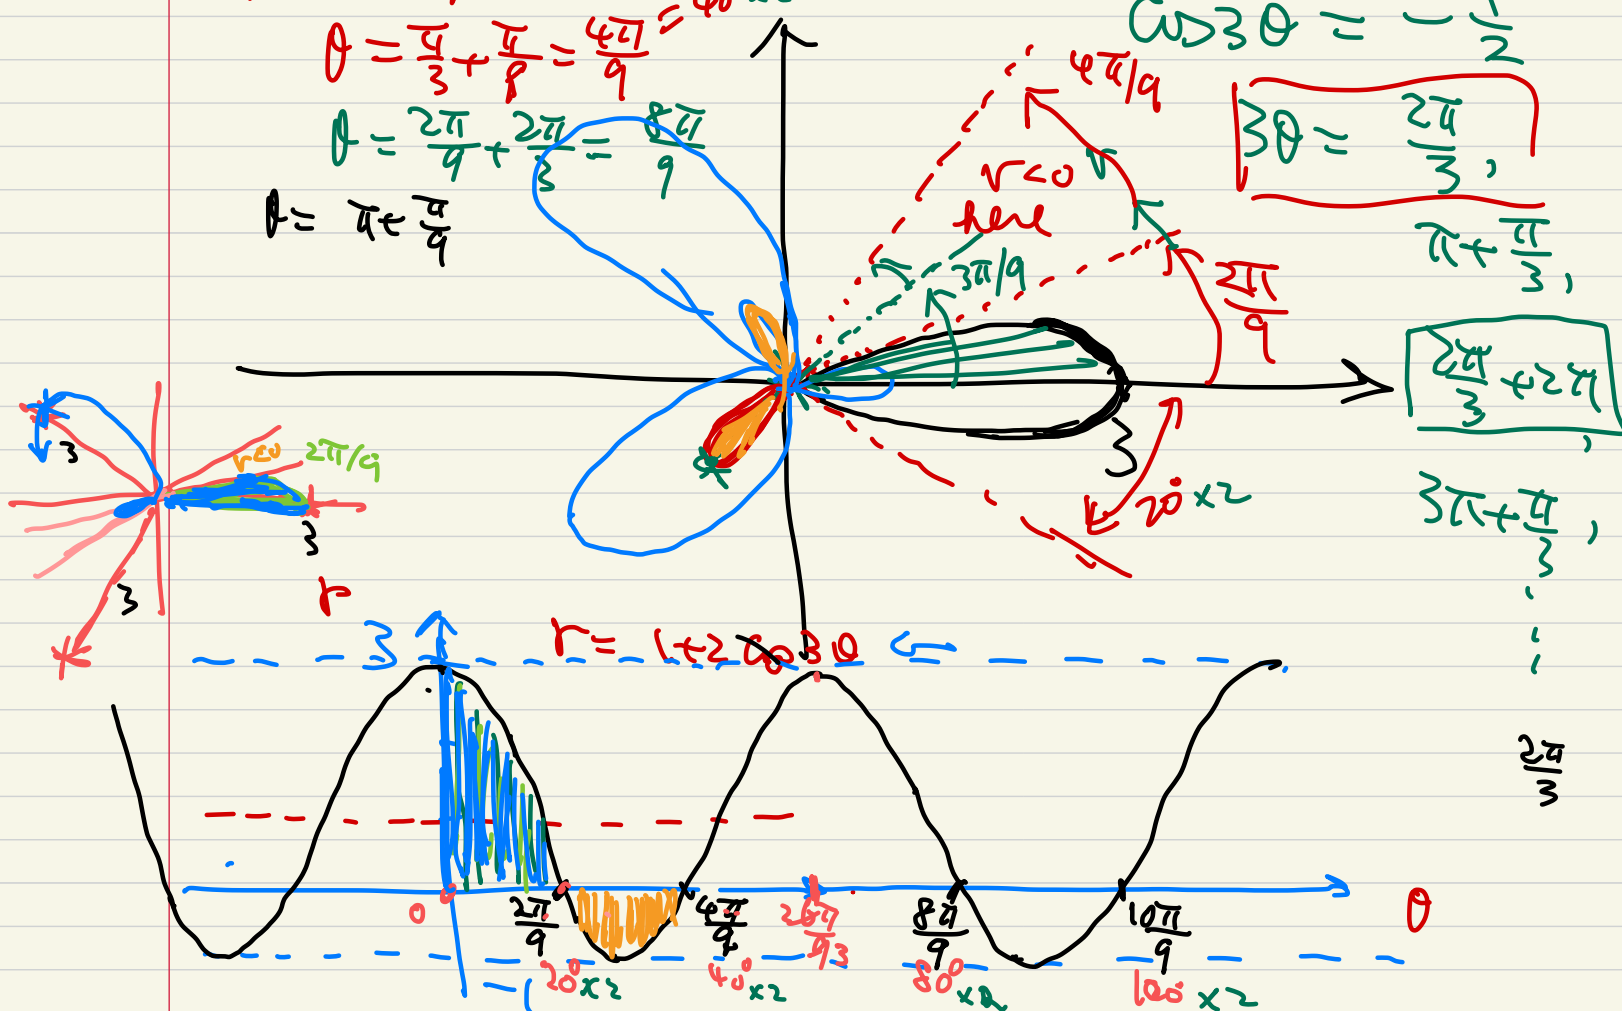 θ = π/3 + π/9 = 4π/9
θ = 2π/9 + 2π/3 = 8π/9
θ = π + π/9
cos3θ = - 1/2
3θ = 2π/3,
π + π/3,
2π/3 + 2π,
3π + π/3,
2π/3
4π/9
r<0
here
3π/9
2π/9
3
20° x2
r<0 2π/9
3
3
3
r
3
r = 1+2cos3θ
0 2π/9 4π/9 8π/9 10π/9 θ
20° x2 40° x2 80° x2 100° x2
-1